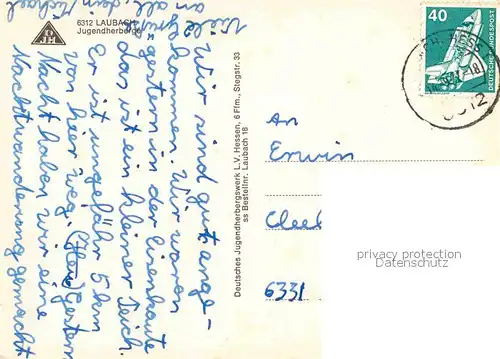 6312 LAUBACH
Jugendherberge
DJH
Wir sind gut ange-
kommen. Wir waren
gestern in der Eisenkaute
das ist ein kleiner Teich.
Er ist ungefähr 5 km
von hier weg. Gestern
Nacht haben wir eine
Nachtwanderung gemacht
Viele
an
all, dein Michael
Deutsches Jugendherbergswerk L.V. Hessen, 6 Ffm., Stegstr. 33
ss Bestellnr. Laubach 18
40
DEUTSCHE BUNDESPOST
An
Erwin
Cleeb
6331
privacy protection
Datenschutz